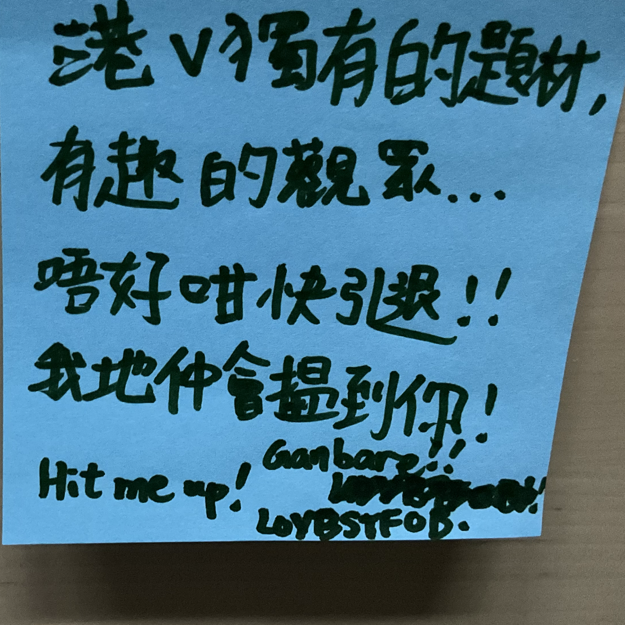 港V獨有的題材,
有趣的觀眾...
唔好咁快引退!!
我地仲會搵到你!
Hit me up!
Ganbare!!
LOYBSTFOB.